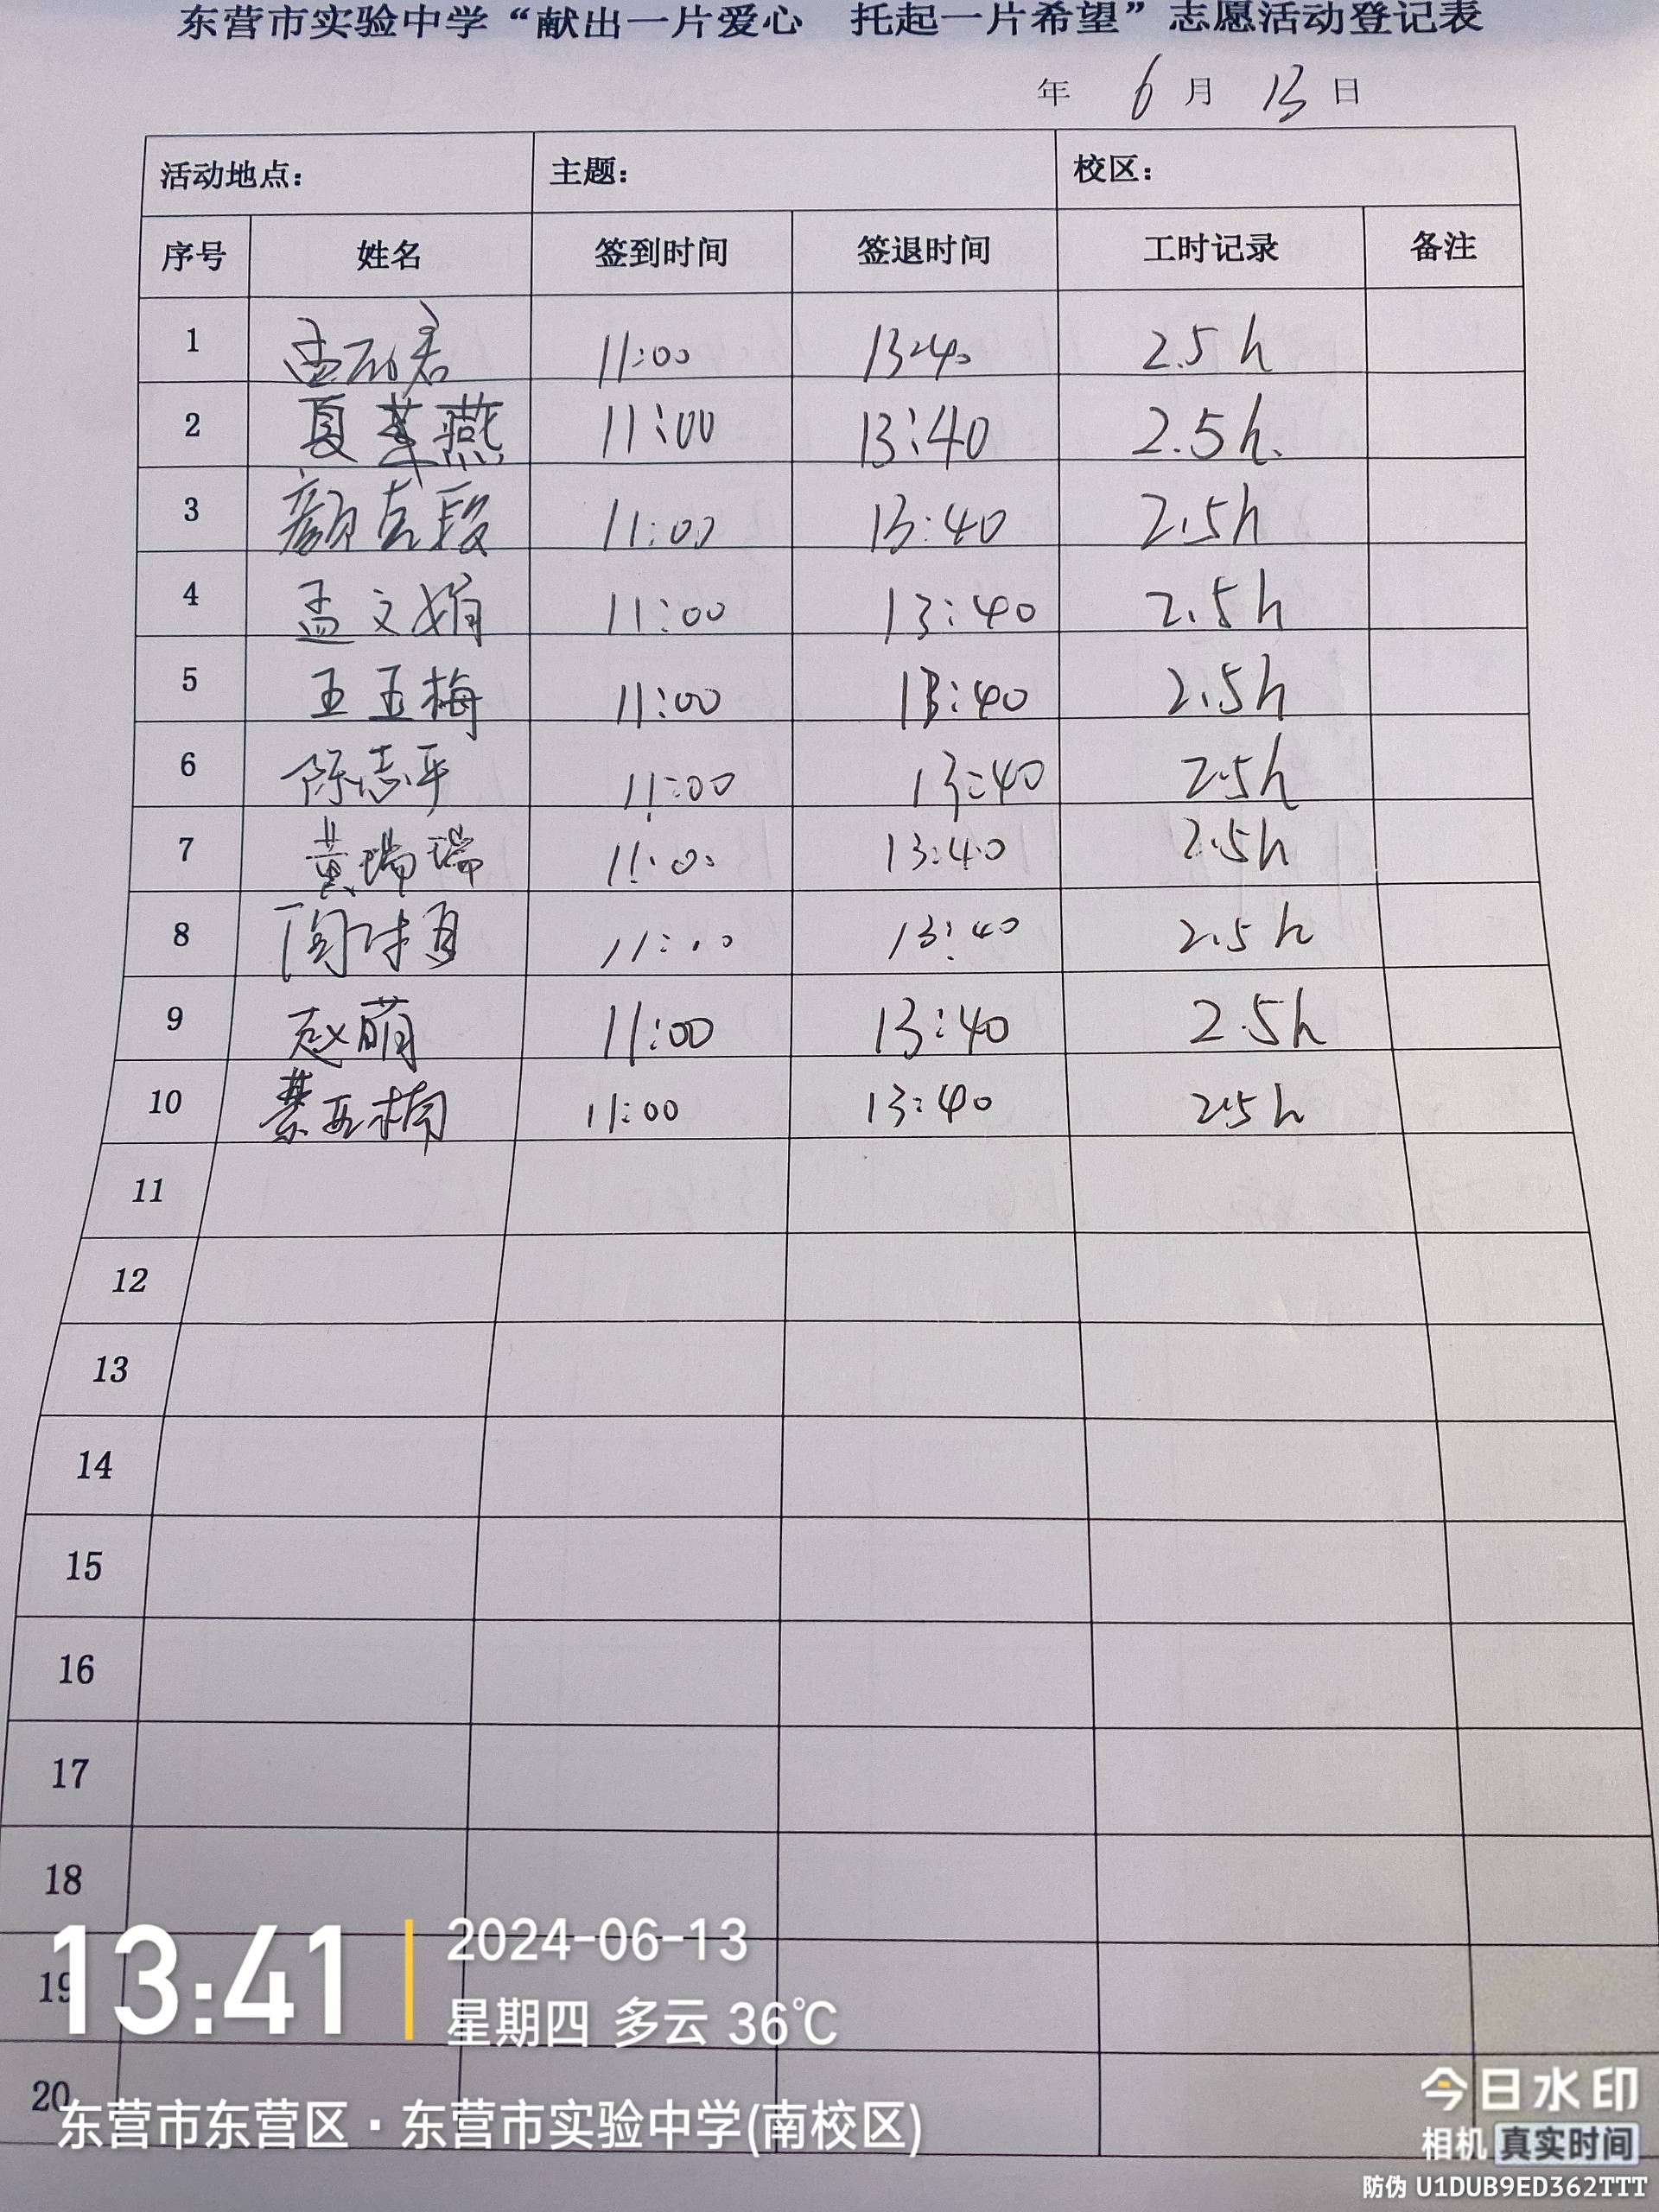 东营市实验中学“献出一片爱心 托起一片希望”志愿活动登记表
年 6 月 13 日
活动地点： 主题： 校区：
序号 姓名 签到时间 签退时间 工时记录 备注
1 孟 君 11:00 13:40 2.5h
2 夏 燕 11:00 13:40 2.5h.
3 颜 段 11:00 13:40 2.5h
4 孟文娟 11:00 13:40 2.5h
5 王玉梅 11:00 13:40 2.5h
6 陈志平 11:00 13:40 2.5h
7 黄瑞瑞 11:00 13:40 2.5h
8 11:00 13:40 2.5h
9 赵萌 11:00 13:40 2.5h
10 綦亚楠 11:00 13:40 2.5h
11
12
13
14
15
16
17
18
19
20
13:41
2024-06-13
星期四 多云 36℃
东营市东营区·东营市实验中学(南校区)
今日水印
相机 真实时间
防伪 U1DUB9ED362TTT